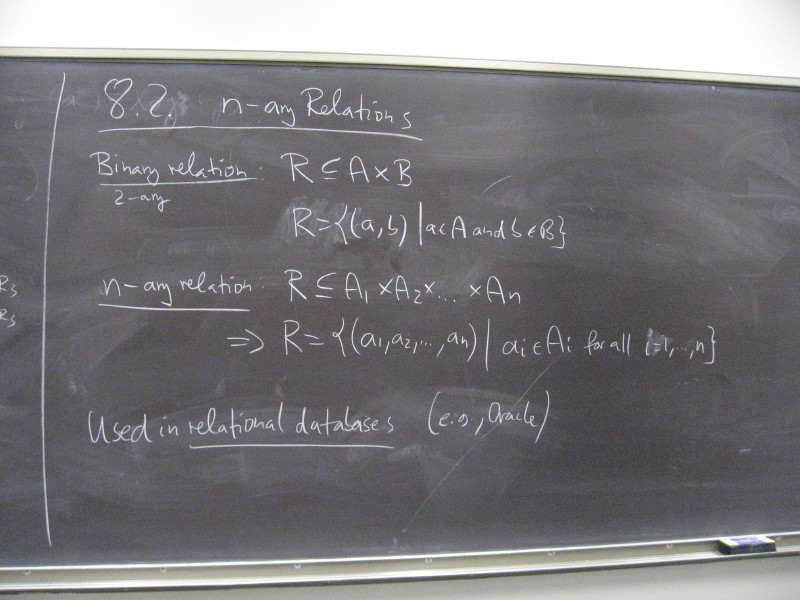 8.2. n-ary Relations
Binary relation: R ⊆ A × B
2-ary
R = {(a,b) | a ∈ A and b ∈ B}
n-ary relation: R ⊆ A₁ × A₂ × ... × Aₙ
⇒ R = {(a₁, a₂, ..., aₙ) | aᵢ ∈ Aᵢ for all i=1,...,n}
Used in relational databases (e.g., Oracle)
R₃
R₃